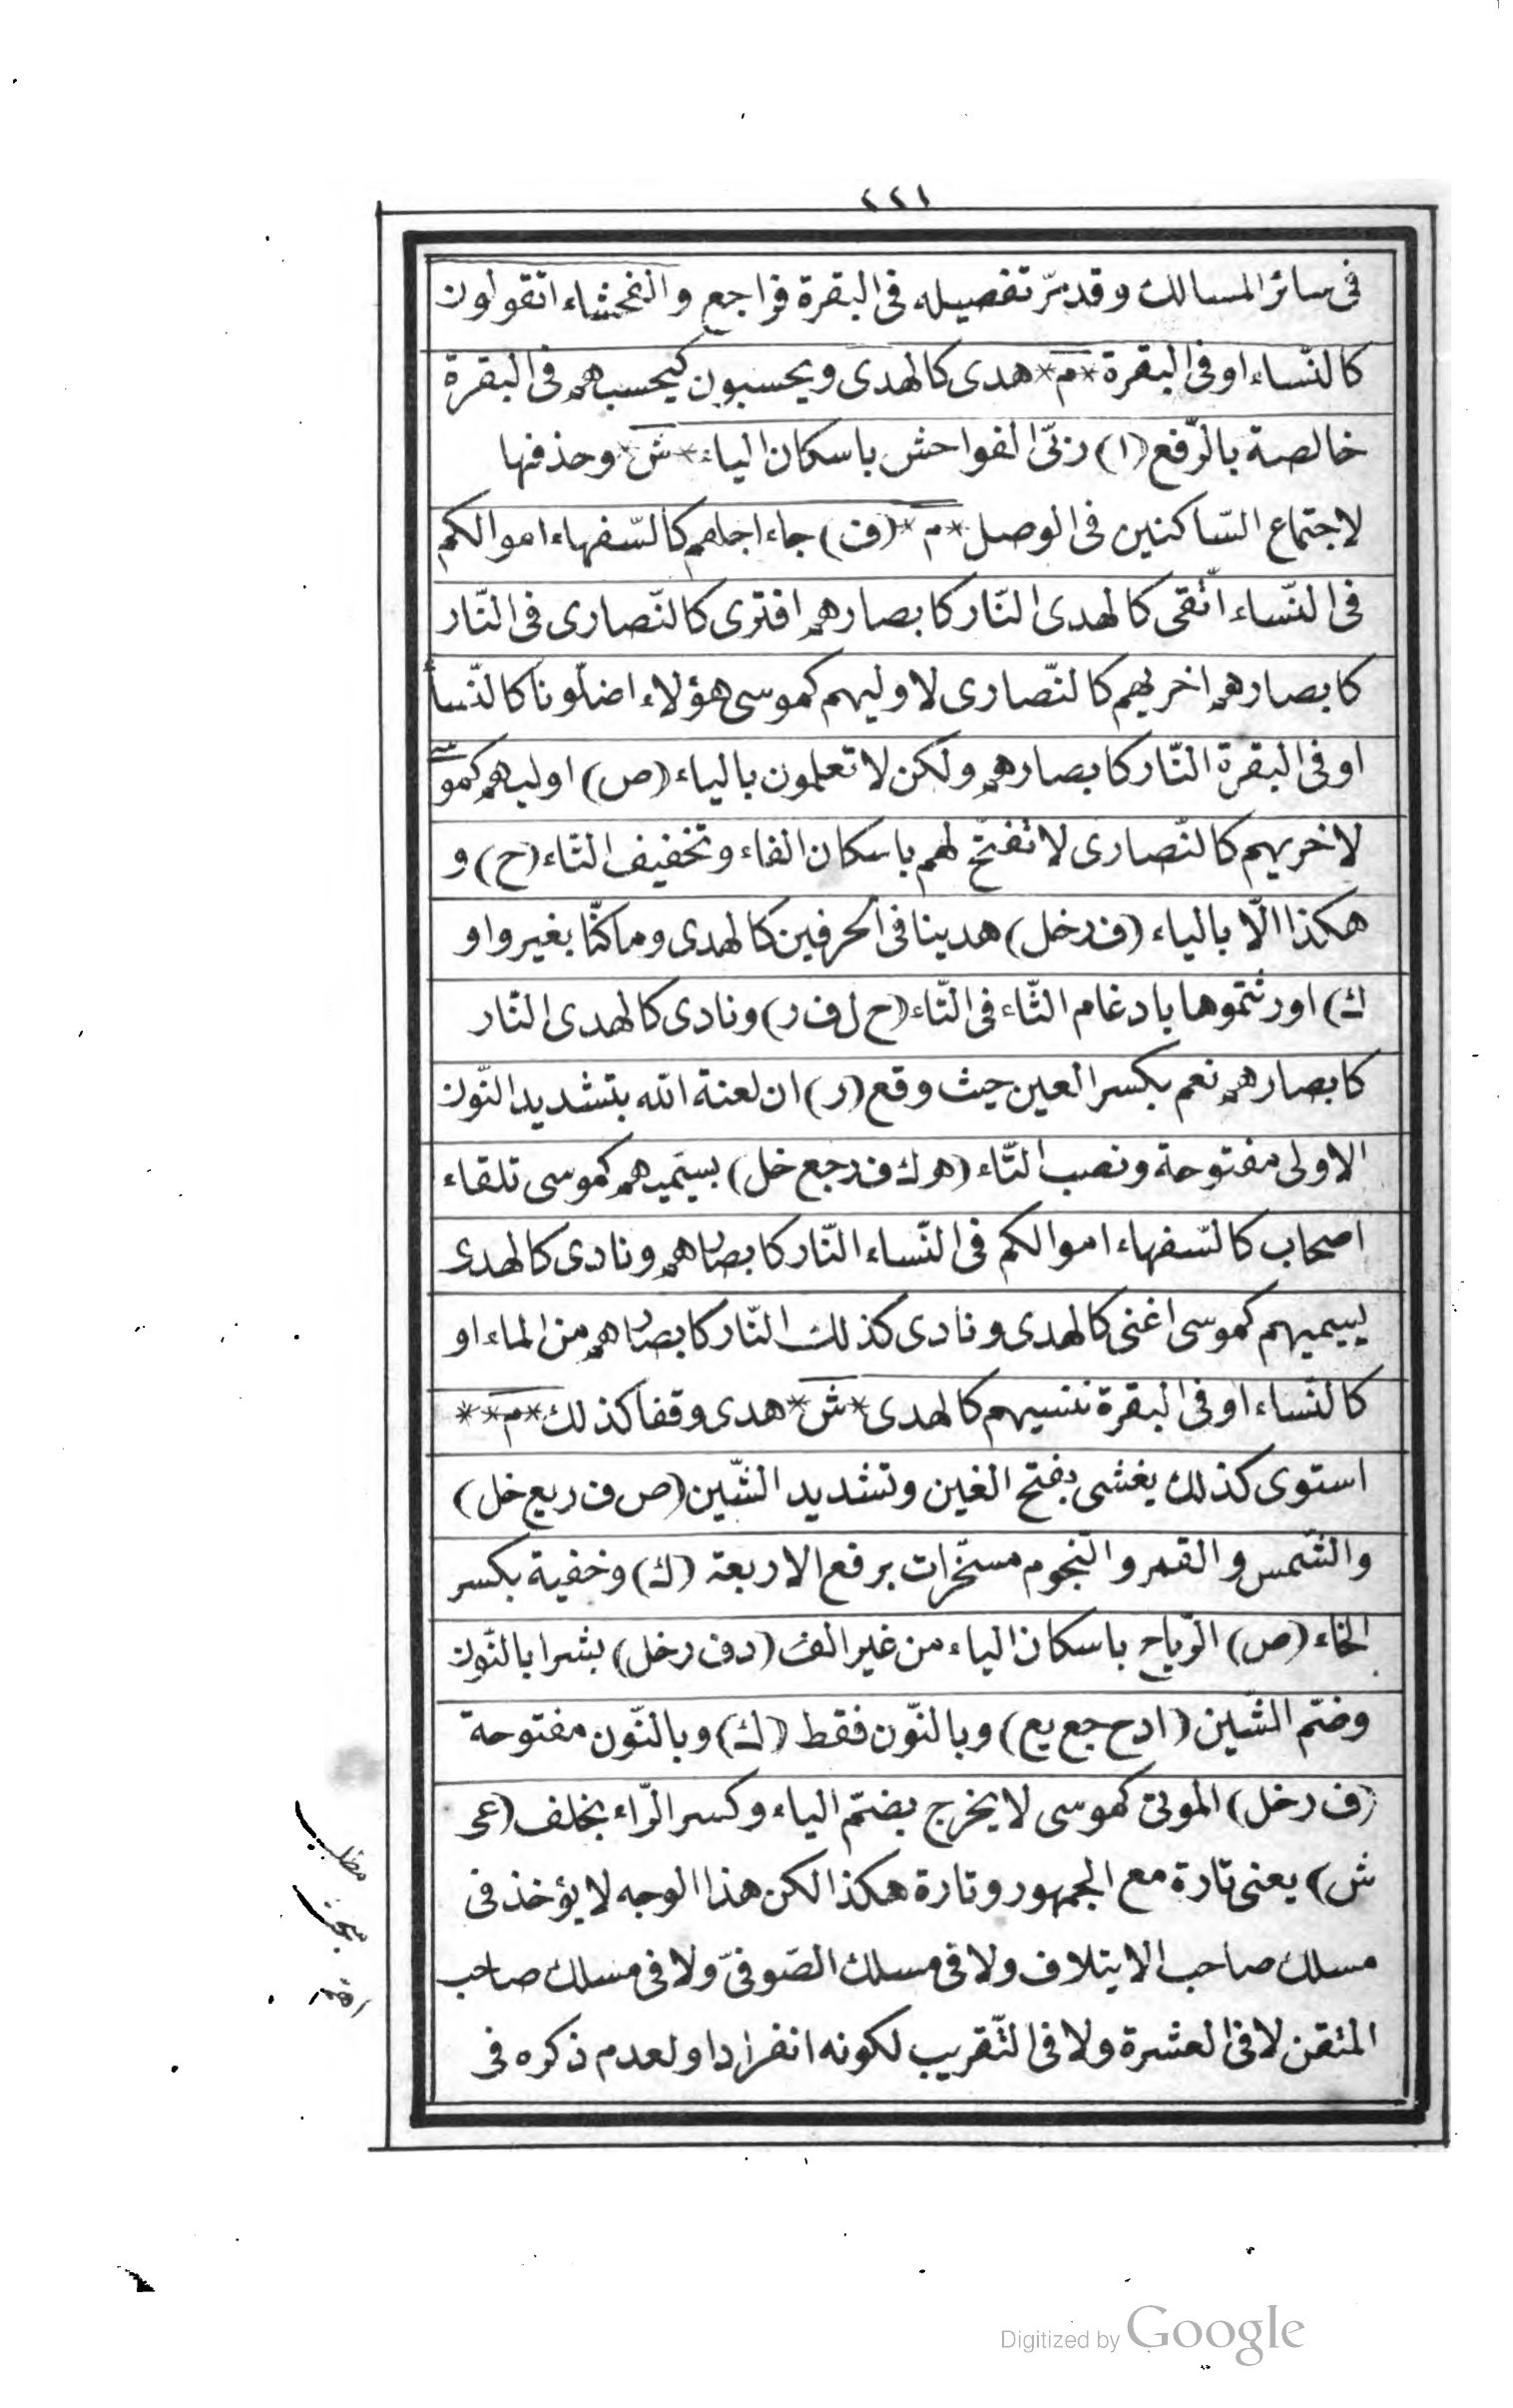 ٢٢١
فى سائر المسالك وقد مرّ تفصيله فى البقرة فراجع والفحشاء اتقولون
كالنّساء او فى البقرة * م * هدى كالهدى ويحسبون كيحسبهم فى البقرة
خالصة بالرّفع (ا) ربّى الفواحش باسكان الياء * ش * وحذفها
لاجتماع السّاكنين فى الوصل * م * (ف) جاء اجلهم كالسّفهاء اموالكم
فى النّساء اتّقى كالهدى النّار كابصارهم افترى كالنّصارى فى النّار
كابصارهم اخريهم كالنّصارى لاوليهم كموسى هؤلاء اضلّونا كالنّسأ
او فى البقرة النّار كابصارهم ولكن لا تعلمون بالياء (ص) اوليهم كموسى
لاخريهم كالنّصارى لا تفتّح لهم باسكان الفاء وتخفيف التّاء (ح) و
هكذا الّا بالياء (ف رخل) هدينا فى الحرفين كالهدى وما كنّا بغير واو
(ك) اورثتموها بادغام الثّاء فى التّاء (ح ل ف ر) ونادى كالهدى النّار
كابصارهم نعم بكسر العين حيث وقع (ر) ان لعنة الله بتشديد النّون
الاولى مفتوحة ونصب التّاء (ه ك ف رجع خل) بسيميهم كموسى تلقاء
اصحاب كالسّفهاء اموالكم فى النّساء النّار كابصارهم ونادى كالهدى
بسيميهم كموسى اغنى كالهدى ونادى كذلك النّار كابصارهم من الماء او
كالنّساء او فى البقرة ننسيهم كالهدى * ش * هدى وقفا كذلك * م * *
استوى كذلك يغشى بفتح الغين وتشديد الشّين (ص ف ريع خل)
والشّمس والقمر والنّجوم مسخّرات برفع الاربعة (ك) وخفية بكسر
الخاء (ص) الرّياح باسكان الياء من غير الف (د ف رخل) بشرا بالنّون
وضمّ الشّين (ادح جع يع) وبالنّون فقط (ك) وبالنّون مفتوحة
(ف رخل) الموتى كموسى لا يخرج بضمّ الياء وكسر الرّاء بخلف (عى
ش) يعنى تارة مع الجمهور وتارة هكذا لكن هذا الوجه لا يؤخذ فى
مسلك صاحب الايتلاف ولا فى مسلك الصّوفىّ ولا فى مسلك صاحب
المتقن لا فى العشرة ولا فى التّقريب لكونه انفرادا ولعدم ذكره فى
مطلب
Digitized by Google